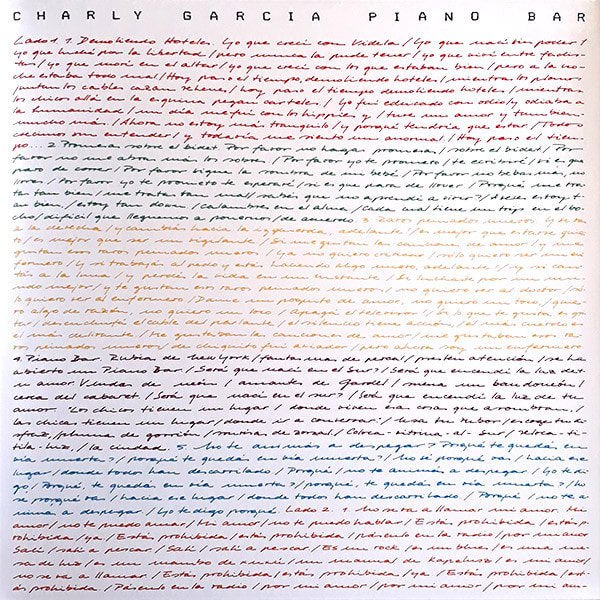 CHARLY GARCIA PIANO BAR
Lado 1 1. Demoliendo Hoteles. Yo que crecí con Videla / Yo que nací sin poder /
yo que luché por la libertad / pero nunca la pude tener / yo que viví entre fachis-
tas / yo que morí en el altar / yo que crecí con los que estaban bien / pero a la no-
che estaba todo mal / Hoy paso el tiempo, demoliendo hoteles / mientras los planos
juntan los cables cazan rehenes / hoy paso el tiempo demoliendo hoteles / mientras
los chicos allá en la esquina pegan carteles / Yo fui educado con odio / y odiaba a
la humanidad / un día me fui con los hippies y / tuve un amor y también
mucho más / Ahora no estoy más tranquilo / y porqué tendría que estar / Todos
crecimos sin entender / y todavía me siento un anormal / Hoy paso el tiem-
po... 2 Promesas sobre el bidet. Por favor no hagas promesas / sobre el bidet / Por
favor no me abras más los sobres / Por favor yo te prometo / te escribiré / si es que
paro de correr / Por favor sigue la sombra de mi bebé / Por favor no bebas más, no
llores / Por favor yo te prometo te esperaré / si es que para de llover / Porqué me tra-
tan tan bien / me tratan tan mal / sabés que no aprendí a vivir? / A veces estoy t-
an bien / estoy tan down / Calambres en el alma / Cada cual tiene un trip en el bo-
cho / difícil que lleguemos a ponernos / de acuerdo 3 Raros peinados nuevos. Y si va
a la derecha / y cambiás hacia la izquierda, adelante! / es mejor que estarse quie-
to / es mejor que ser un vigilante / Si me gustan las canciones de amor / y me
gustan esos raros peinados nuevos / Ya no quiero criticar / sólo quiero ser un en-
fermero / Y si trabajás al pedo y estás haciendo algo nuevo, adelante! / y si can-
tás a la luna / y perdés la vida en un instante / Si luchaste por un
mundo mejor / y te gustan esos raros peinados nuevos / no quiero ver al doctor / só-
lo quiero ver al enfermero / Dame un poquito de amor, no quiero un toco / quie-
ro algo de razón, no quiero un loco / Apagá el televisor / Si lo que te gusta es gri-
tar / desenchufá el cable del parlante / el silencio tiene acción / el más cuerdo es
el más delirante / Me gustan las canciones de amor / me gustan esos raros ra-
ros, peinados nuevos / de chiquito fui aviador / pero ahora soy un enfermero
1. Piano Bar. Rubia de New York / fantasma de percal / presten atención / se ha
abierto un Piano Bar / Será que nací en el Sur? / Será que encendí la luz de t-
u amor Viudas de neón / amantes de Gardel / suena un bandoneón /
cerca del cabaret / Será que nací en el sur? / Será que encendí la luz de tu
amor. Los chicos tienen un lugar / donde viven esas cosas que asombran. /
las chicas tienen un lugar / donde ir a conversar / Usa tu disfraz, escoge tu di-
sfraz / pluma de gorrión / sonrisa de Doral / Colorea-retina-así su ser / reten ti-
tila-luz / la ciudad. 5. No te animás a despegar? Porqué te quedás en
vía muerta? / porqué te quedás en vía muerta? / No sé porqué van / hacia ese
lugar / donde todos han descarrilado / Porqué / no te animás a despegar / Yo te di-
go / Porqué, te quedás en vía muerta? / porqué, te quedás en vía muerta? / no
se porqué van / hacia ese lugar / donde todos han descarrilado / Porqué / no te a-
nimás a despegar / Yo te digo porqué Lado 2. 1. No se va a llamar mi amor. Mi
amor / no te puedo amar / Mi amor / no te puedo hablar / Estás prohibida / estás p-
rohibida / ya / Estás prohibida / estás prohibida / pásenlo en la radio / por mi amor
Salí / salí a pescar / Salí / salí a pescar / Es un rock / es un blues / es un me-
sa de luz / es un mambo de Xavier / un manual de Kapelusz / es mi amor /
no se va a llamar / Estás prohibida / estás prohibida / ya / Estás prohibida / est-
ás prohibida / Pásenlo en la radio / por mi amor / por mi amor / por mi am-